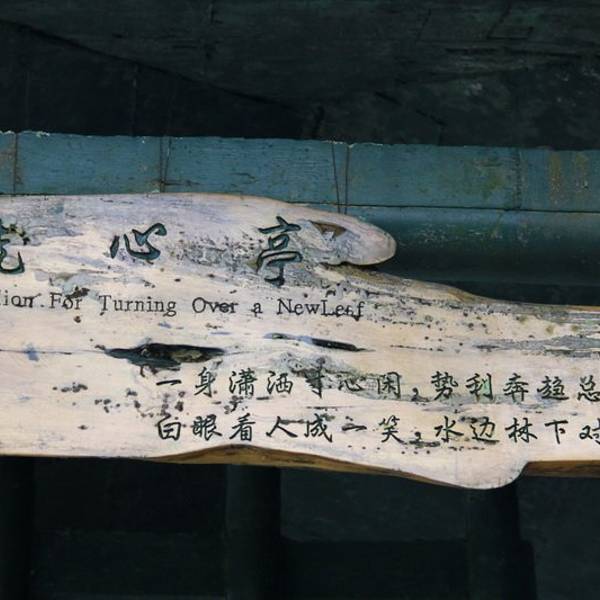 心亭
For Turning Over a NewLeaf
一身潇洒寸心闲,势利奔趋总
白眼看人成一笑,水边林下对